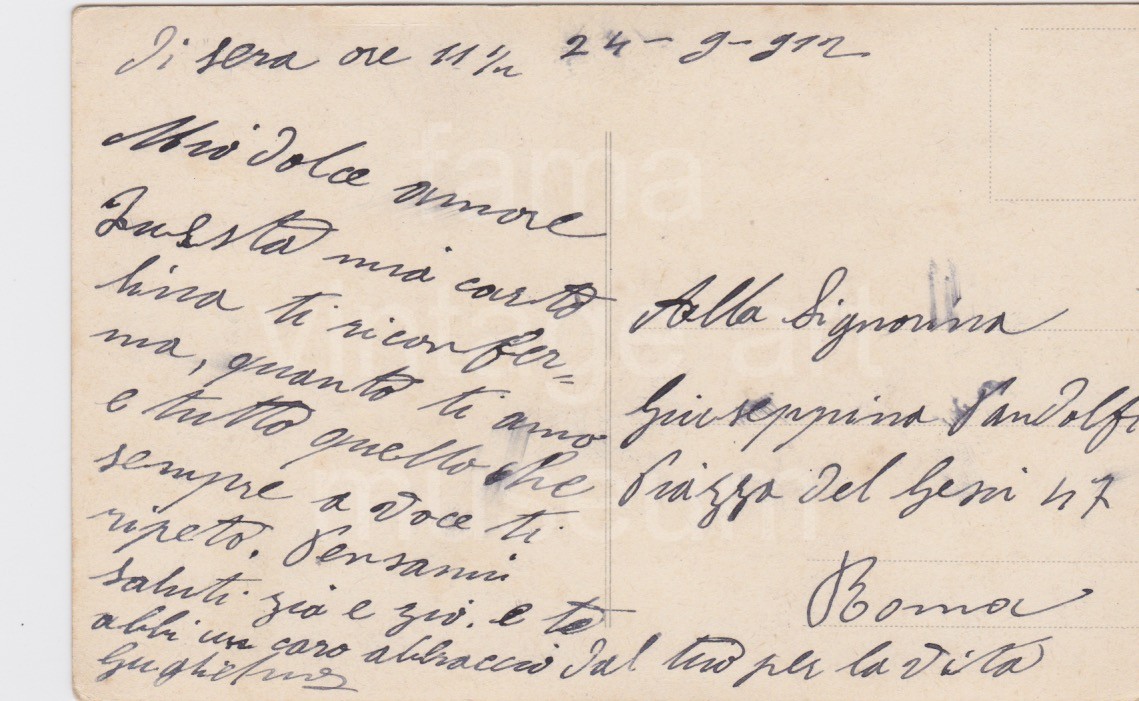 Di sera ore 11 ½ 24 - 9 - 912
Mio dolce amore
Questa mia carto
lina ti riconfer=
ma, quanto ti amo
e tutto quello che
sempre a voce ti
ripeto. Pensami
saluti zia e zio. e te
abbi un caro abbraccio dal tuo per la vita
Guglielmo
Alla Signorina
Giuseppina Pandolfi
Piazza del Gesù 47
Roma
fama
vintage art
museum